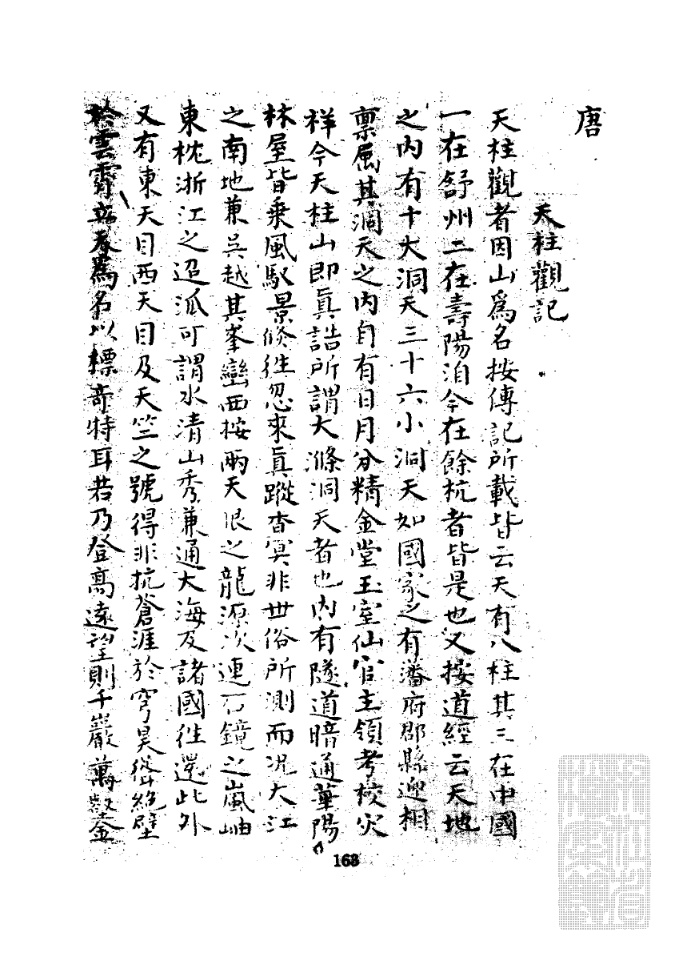 唐
天柱觀記
天柱觀者因山爲名按傳記所載皆云天有八柱其三在中國
一在舒州二在壽陽洎今在餘杭者皆是也又按道經云天地
之内有十大洞天三十六小洞天如國家之有藩府郡縣遞相
禀属其洞天之内自有日月分精金堂玉室仙官主領考校灾
祥今天柱山即真誥所謂大滌洞天者也内有隧道暗通華陽
林屋皆乘風馭景倏往忽來真蹤杳冥非世俗所測而况大江
之南地兼吴越其峯巒西接兩天眼之龍源次連石鏡之嵐岫
東枕浙江之迢派可謂水清山秀兼通大海及諸國往還此外
又有東天目西天目及天竺之號得非抗蒼涯於穹昊聳絶壁
於雲霄立天爲名以標奇特耳若乃登高遠望則千巖萬壑
168